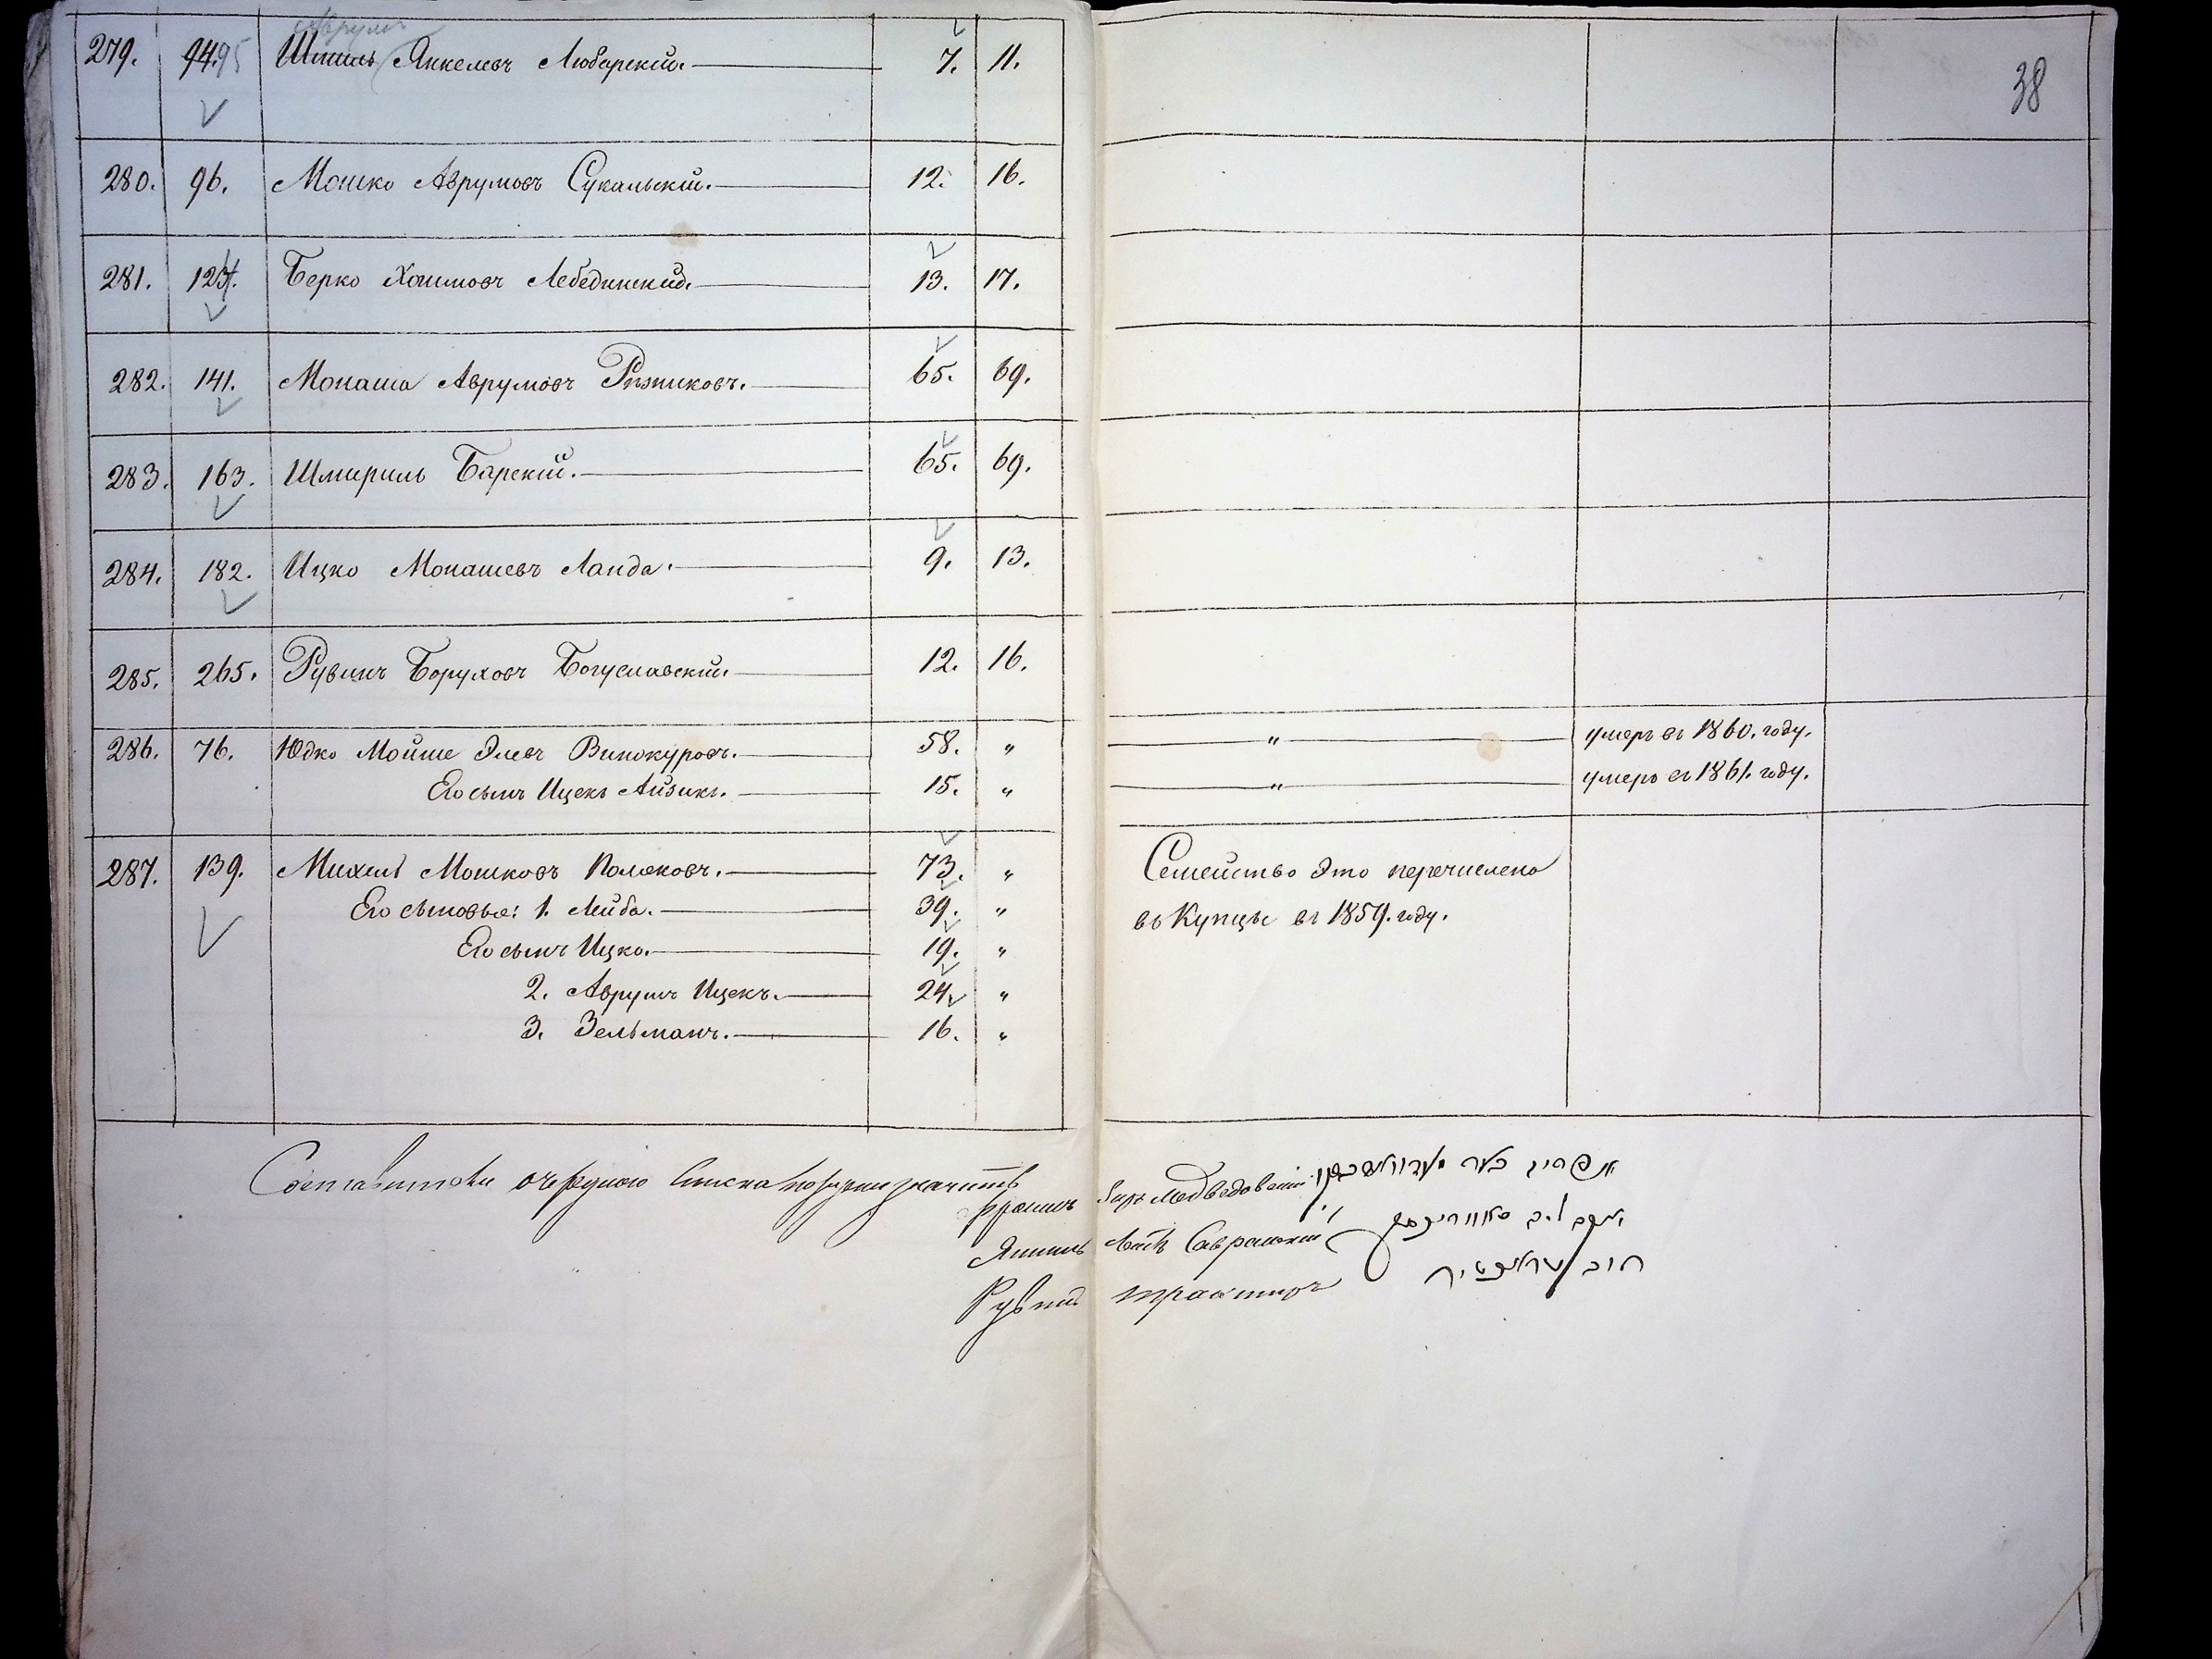 38
Аврумъ
279. 94. 95 Шмиль Янкелевъ Любарскій. 7. 11.
280. 96. Мошко Аврумовъ Сукальскій. 12. 16.
281. 124. Берко Хаимовъ Лебединскій. 13. 17.
282. 141. Монаша Аврумовъ Рѣзниковъ. 65. 69.
283. 163. Шмириль Барскій. 65. 69.
284. 182. Ицко Монашевъ Ланда. 9. 13.
285. 265. Рувинъ Боруховъ Богуславскій. 12. 16.
286. 76. Юдко Мойше Элевъ Винокуровъ. 58. " " умеръ въ 1860. году.
Его сынъ Ицекъ Айзикъ. 15. " " умеръ въ 1861. году.
287. 139. Михель Мошковъ Поляковъ. 73. " Семейство это перечислено
Его сыновья: 1. Лейба. 39. " въ Купцы въ 1859. году.
Его сынъ Ицко. 19. "
2. Аврумъ Ицекъ. 24. "
3. Зельманъ. 16. "
Составители очереднаго списка
Фроимъ Беръ Медведовскій אפרים בער
Янкель Лейбъ Савранскій יעקב ליב סאווראנסקי
Рувинъ Трактиръ